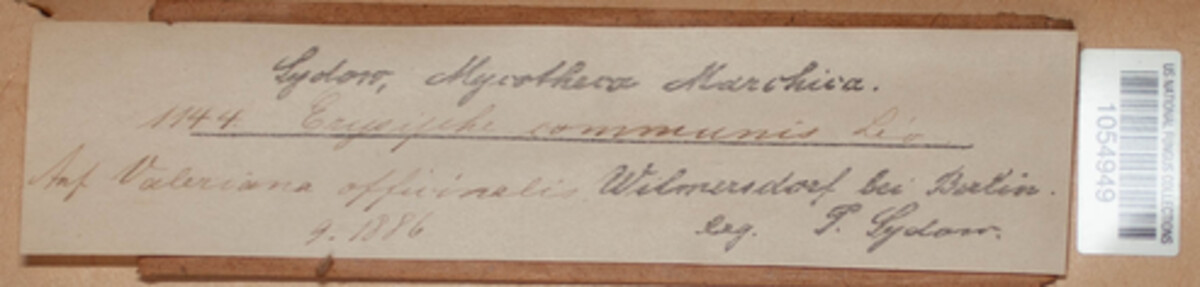 Sydow, Mycotheca Marchica.
1144. Erysiphe communis Lév.
Auf Valeriana officinalis Wilmersdorf bei Berlin.
9. 1886 leg. P. Sydow.
US NATIONAL FUNGUS COLLECTIONS
1054949